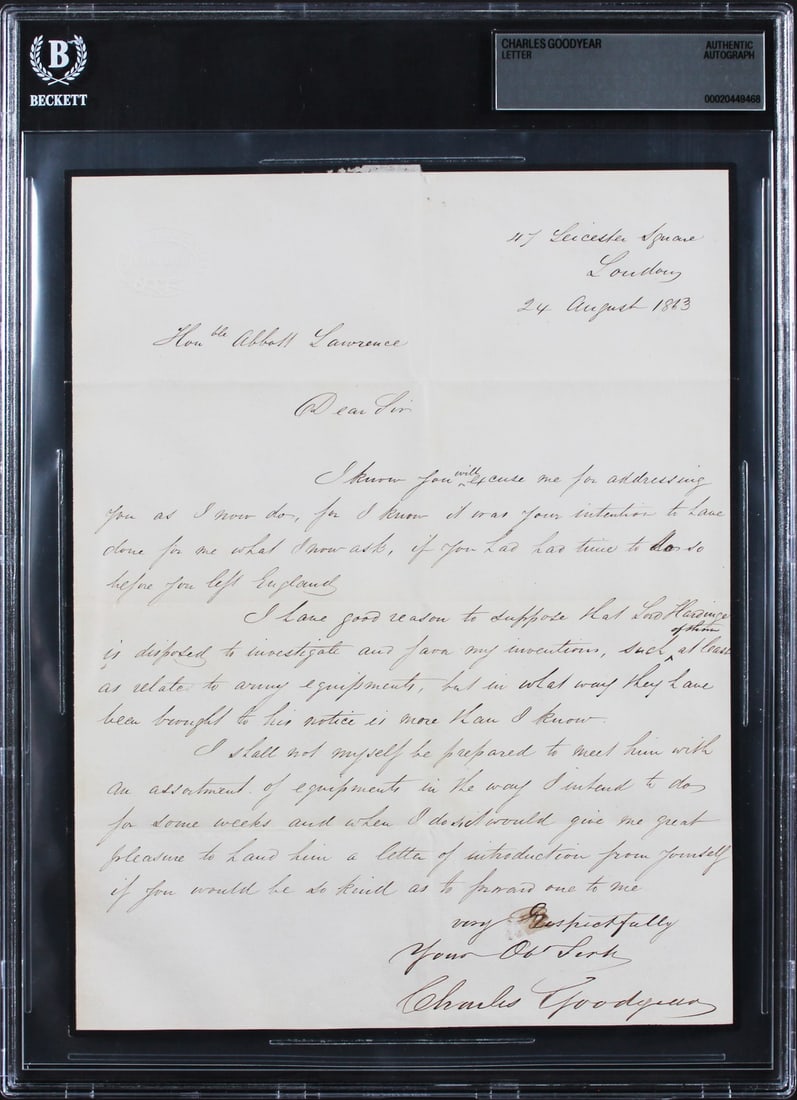 B
BECKETT
CHARLES GOODYEAR
LETTER
AUTHENTIC
AUTOGRAPH
00020449468
47 Leicester Square
London
24 August 1853
Honble Abbott Lawrence
Dear Sir
I know you will excuse me for addressing
you as I now do, for I know it was your intention to have
done for me what I now ask, if you had had time to do so
before you left England
I have good reason to suppose that Lord Hardinge
is disposed to investigate and favor my inventions, such of them at least
as relate to army equipments, but in what way they have
been brought to his notice is more than I know.
I shall not myself be prepared to meet him with
an assortment of equipments in the way I intend to do
for some weeks and when I do, it would give me great
pleasure to hand him a letter of introduction from yourself
if you would be so kind as to forward one to me
very Respectfully
Your Obt Servt
Charles Goodyear